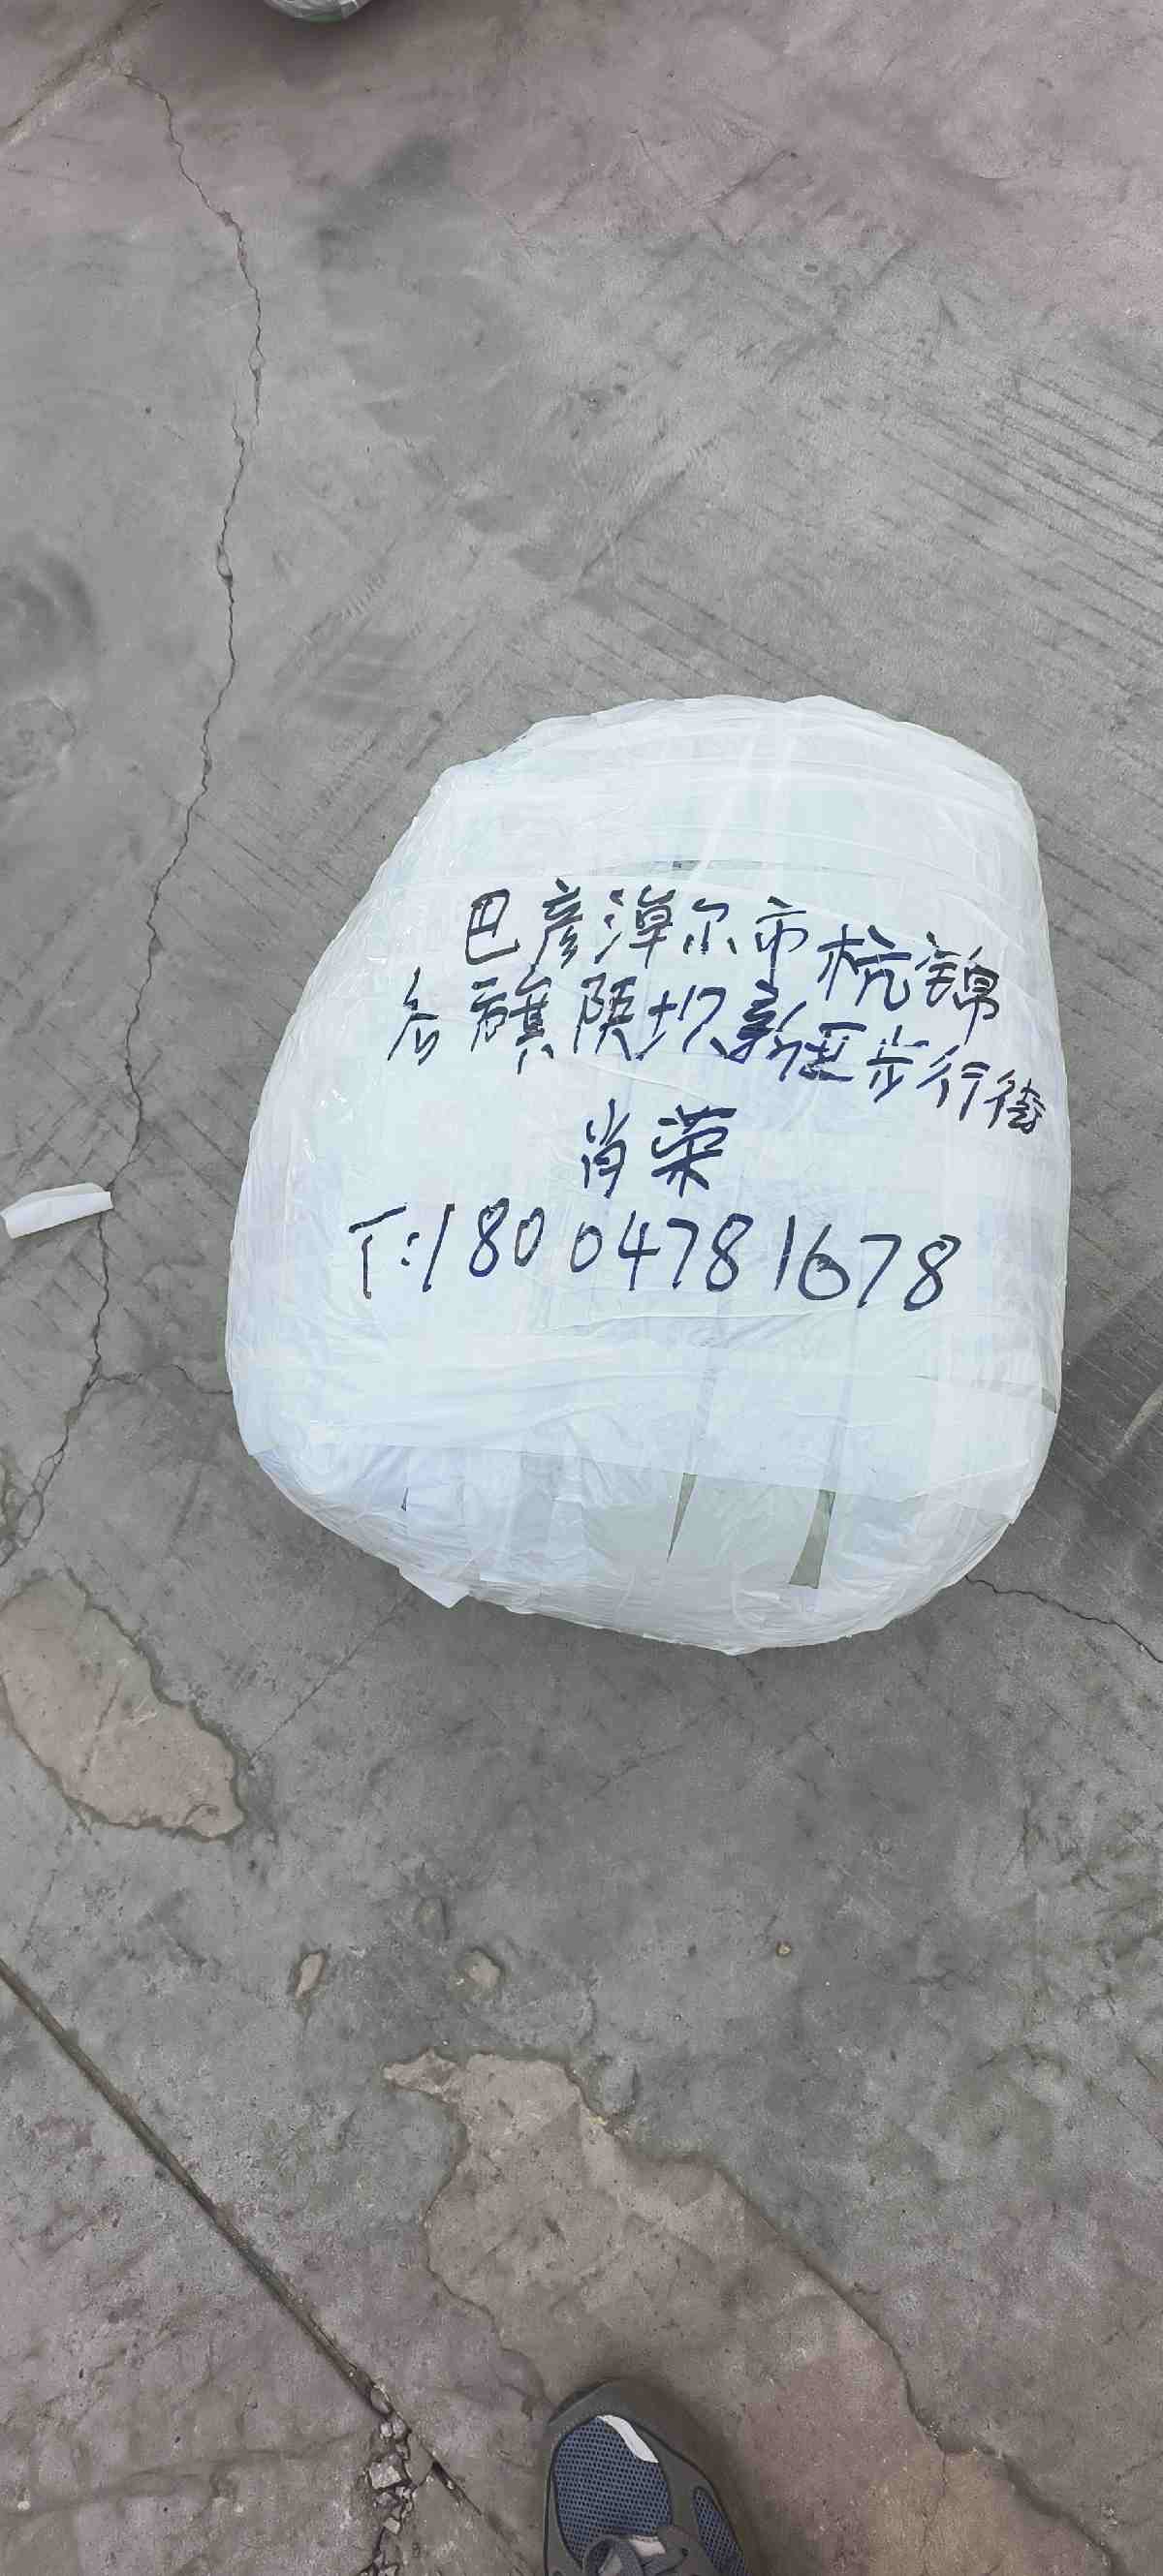 巴彦淖尔市杭锦
后旗陕坝新区步行街
肖荣
T:18004781678